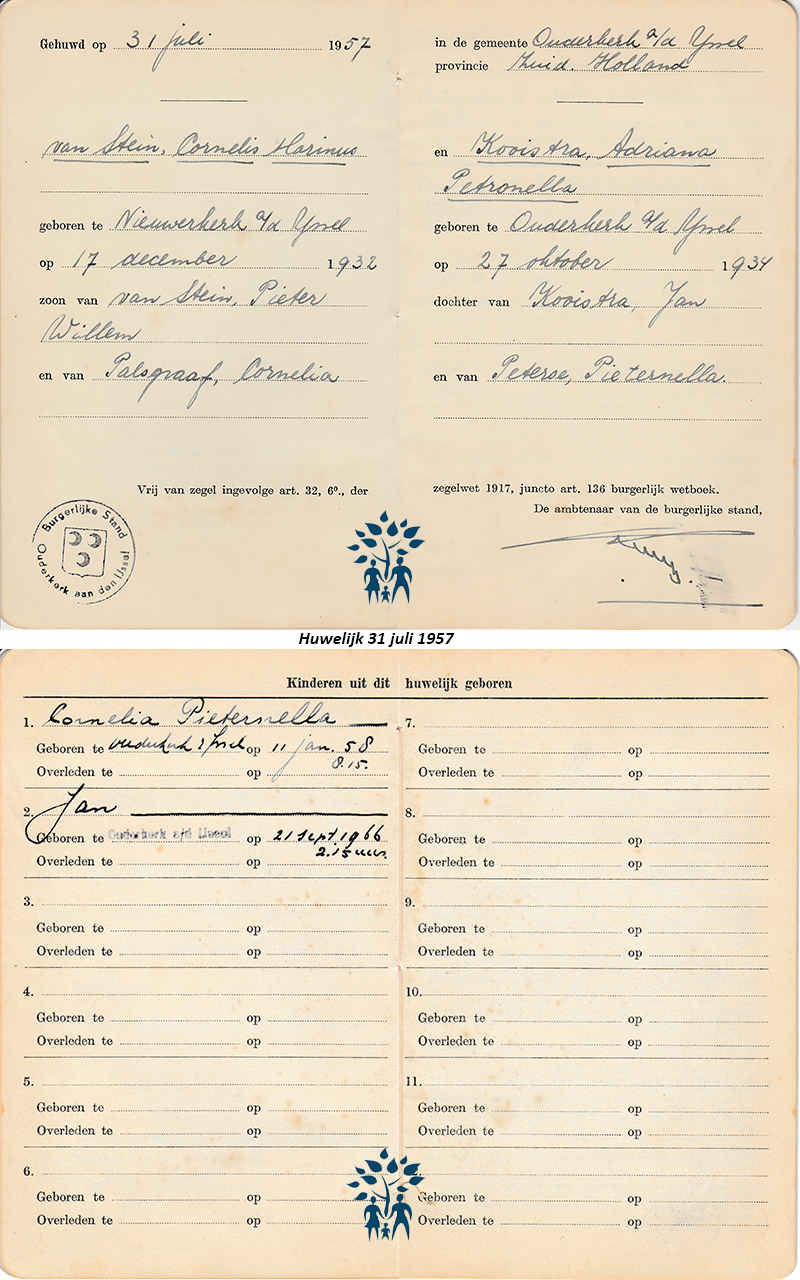 Gehuwd op 31 juli 1957
van Stein, Cornelis Marinus
geboren te Nieuwerkerk a/d Yssel
op 17 december 1932
zoon van van Stein, Pieter
Willem
en van Palsgraaf, Cornelia
Vrij van zegel ingevolge art. 32, 6°., der
Burgerlijke Stand
Ouderkerk aan den IJssel
in de gemeente Ouderkerk a/d Yssel
provincie Zuid. Holland
en Kooistra, Adriana
Petronella
geboren te Ouderkerk a/d Yssel
op 27 oktober 1934
dochter van Kooistra, Jan
en van Peterse, Pieternella.
zegelwet 1917, juncto art. 136 burgerlijk wetboek.
De ambtenaar van de burgerlijke stand,
Huwelijk 31 juli 1957
Kinderen uit dit huwelijk geboren
1. Cornelia Pieternella
Geboren te Ouderkerk a/d IJssel op 11 jan. 58
8.15.
Overleden te op
2. Jan
Geboren te Ouderkerk a/d IJssel op 21 sept. 1966
2.15 uur.
Overleden te op
3.
Geboren te op
Overleden te op
4.
Geboren te op
Overleden te op
5.
Geboren te op
Overleden te op
6.
Geboren te op
Overleden te op
7.
Geboren te op
Overleden te op
8.
Geboren te op
Overleden te op
9.
Geboren te op
Overleden te op
10.
Geboren te op
Overleden te op
11.
Geboren te op
Overleden te op
Geboren te op
Overleden te op